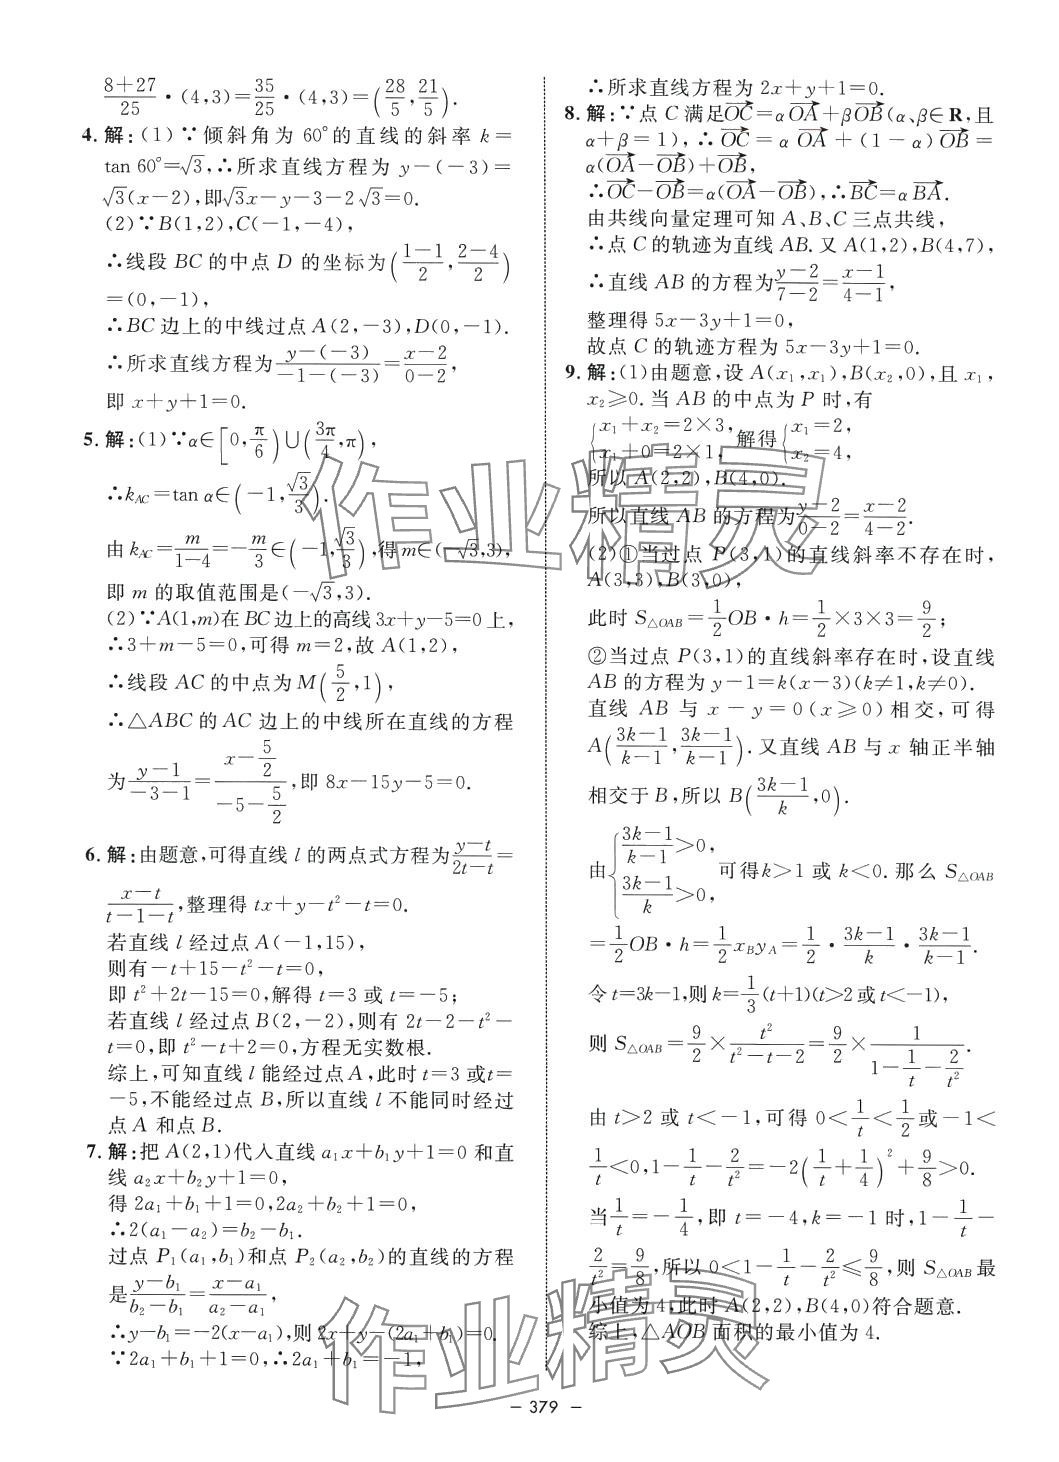 8+27/25・(4,3)=35/25・(4,3)=(28/5,21/5).
4. 解:(1)∵倾斜角为 60°的直线的斜率 k=
tan 60°=√3,∴所求直线方程为 y-(-3)=
√3(x-2),即√3x-y-3-2√3=0.
(2)∵B(1,2),C(-1,-4),
∴线段 BC 的中点 D 的坐标为((1-1)/2,(2-4)/2)
=(0,-1),
∴BC 边上的中线过点 A(2,-3),D(0,-1).
∴所求直线方程为(y-(-3))/(-1-(-3))=(x-2)/(0-2),
即 x+y+1=0.
5. 解:(1)∵α∈[0,π/6)∪(3π/4,π),
∴k_AC=tan α∈(-1,√3/3).
由 k_AC=m/(1-4)=-m/3∈(-1,√3/3),得 m∈(-√3,3),
即 m 的取值范围是(-√3,3).
(2)∵A(1,m)在 BC 边上的高线 3x+y-5=0上,
∴3+m-5=0,可得 m=2,故 A(1,2),
∴线段 AC 的中点为 M(5/2,1),
∴△ABC 的 AC 边上的中线所在直线的方程
为(y-1)/(-3-1)=(x-5/2)/(-5-5/2),即 8x-15y-5=0.
6. 解:由题意,可得直线 l 的两点式方程为(y-t)/(2t-t)=
(x-t)/(t-1-t),整理得 tx+y-t²-t=0.
若直线 l 经过点 A(-1,15),
则有-t+15-t²-t=0,
即 t²+2t-15=0,解得 t=3 或 t=-5;
若直线 l 经过点 B(2,-2),则有 2t-2-t²-
t=0,即 t²-t+2=0,方程无实数根.
综上,可知直线 l 能经过点 A,此时 t=3 或t=
-5,不能经过点 B,所以直线 l 不能同时经过
点 A 和点 B.
7. 解:把 A(2,1)代入直线 a₁x+b₁y+1=0 和直
线 a₂x+b₂y+1=0,
得 2a₁+b₁+1=0,2a₂+b₂+1=0,
∴2(a₁-a₂)=b₂-b₁.
过点 P₁(a₁,b₁)和点 P₂(a₂,b₂)的直线的方程
是(y-b₁)/(b₂-b₁)=(x-a₁)/(a₂-a₁),
∴y-b₁=-2(x-a₁),则2x+y-(2a₁+b₁)=0.
∵2a₁+b₁+1=0,∴2a₁+b₁=-1,
∴所求直线方程为 2x+y+1=0.
8. 解:∵点 C 满足OC→=αOA→+βOB→(α、β∈R,且
α+β=1),∴OC→=αOA→+(1-α)OB→=
α(OA→-OB→)+OB→,
∴OC→-OB→=α(OA→-OB→),∴BC→=αBA→.
由共线向量定理可知 A、B、C 三点共线,
∴点 C 的轨迹为直线 AB. 又 A(1,2),B(4,7),
∴直线 AB 的方程为(y-2)/(7-2)=(x-1)/(4-1),
整理得 5x-3y+1=0,
故点 C 的轨迹方程为 5x-3y+1=0.
9. 解:(1)由题意,设 A(x₁,x₁),B(x₂,0),且 x₁,
x₂≥0. 当 AB 的中点为 P 时,有
{x₁+x₂=2×3, x₁+0=2×1, 解得{x₁=2, x₂=4,
所以 A(2,2),B(4,0).
所以直线 AB 的方程为(y-2)/(0-2)=(x-2)/(4-2).
(2)①当过点 P(3,1)的直线斜率不存在时,
A(3,3),B(3,0),
此时 S△OAB=1/2OB・h=1/2×3×3=9/2;
②当过点 P(3,1)的直线斜率存在时,设直线
AB 的方程为 y-1=k(x-3)(k≠1,k≠0).
直线 AB 与 x-y=0(x≥0)相交,可得
A((3k-1)/(k-1),(3k-1)/(k-1)). 又直线 AB 与 x 轴正半轴
相交于 B,所以 B((3k-1)/k,0).
由{(3k-1)/(k-1)>0, (3k-1)/k>0, 可得k>1 或 k<0. 那么 S△OAB
=1/2OB・h=1/2x_By_A=1/2・(3k-1)/k・(3k-1)/(k-1).
令 t=3k-1,则 k=1/3(t+1)(t>2或 t<-1),
则 S△OAB=9/2×t²/(t²-t-2)=9/2×1/(1-1/t-2/t²).
由 t>2 或 t<-1,可得 0<1/t<1/2或-1<
1/t<0,1-1/t-2/t²=-2(1/t+1/4)²+9/8>0.
当1/t=-1/4,即 t=-4,k=-1 时,1-1/t-
2/t²=9/8,所以 0<1-1/t-2/t²≤9/8,则 S△OAB最
小值为 4,此时 A(2,2),B(4,0)符合题意.
综上,△AOB 面积的最小值为 4.
- 379 -
作业精灵
作业精灵